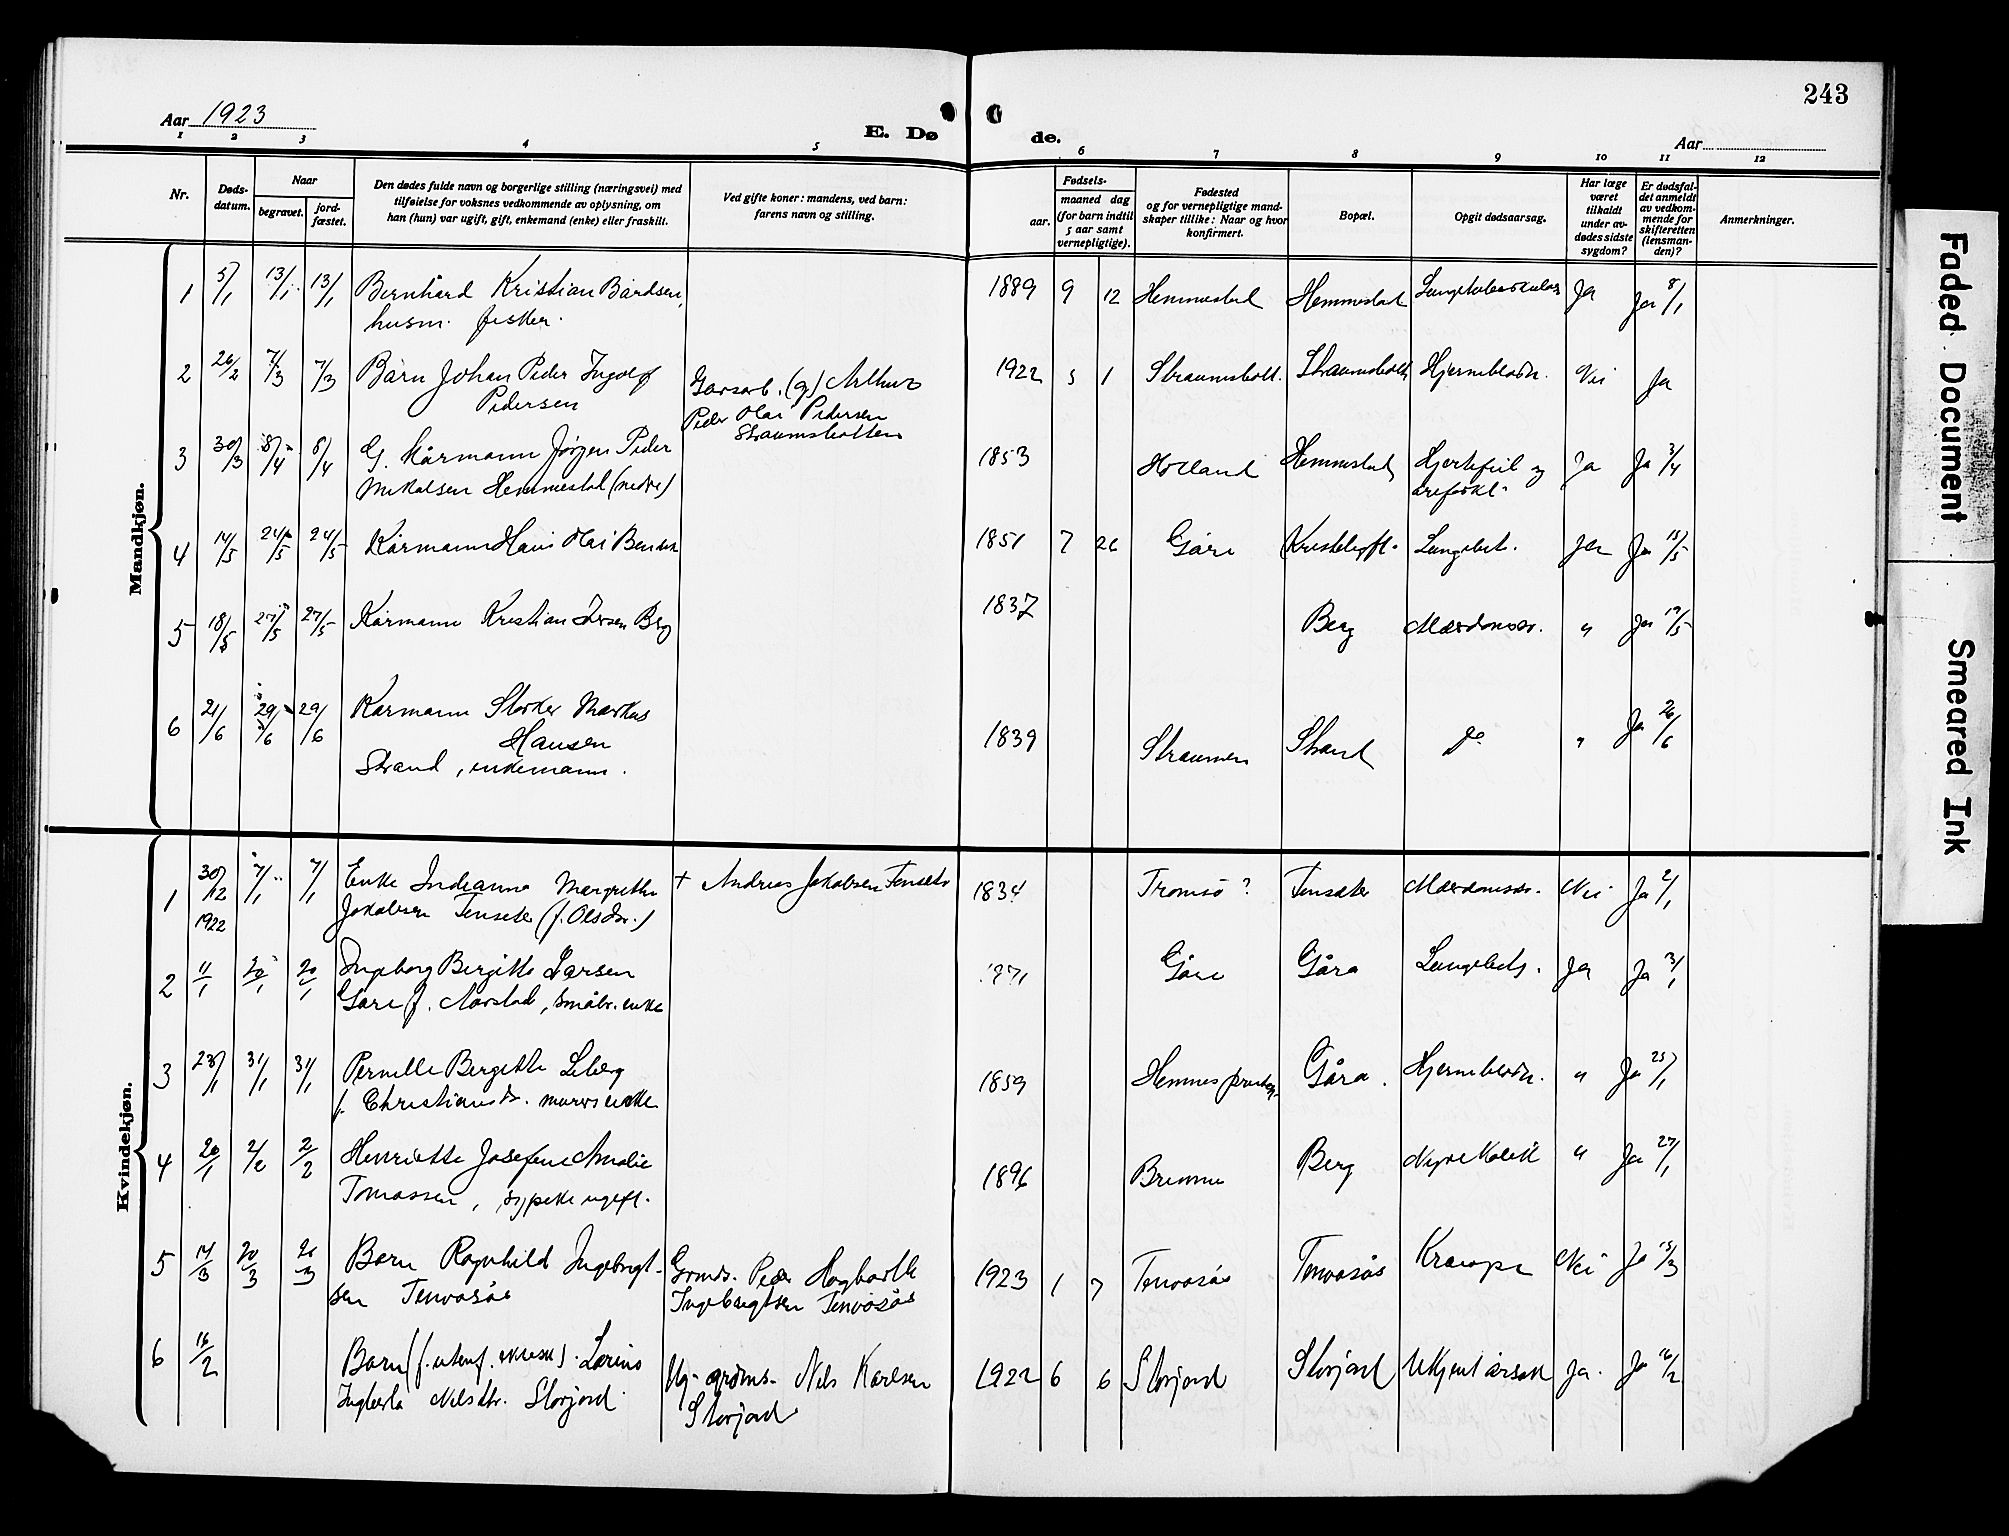 243
Aar 1923
E. Dø de.
Aar
1 2 3 4 5 6 7 8 9 10 11 12
Nr.
Døds-
datum.
Naar
begravet.
jord-
fæstet.
Den dødes fulde navn og borgerlige stilling (næringsvei) med
tilføielse for voksnes vedkommende av oplysning, om
han (hun) var ugift, gift, enkemand (enke) eller fraskilt.
Ved gifte koner: mandens, ved barn:
farens navn og stilling.
Fødsels-
aar.
maaned dag
(for barn indtil
5 aar samt
vernepligtige).
Fødested
og for vernepligtige mand-
skaper tillike: Naar og hvor
konfirmert.
Bopæl.
Opgit dødsaarsag.
Har læge
været
tilkaldt
under av-
dødes sidste
sygdom?
Er dødsfal-
det anmeldt
av vedkom-
mende for
skifteretten
(lensman-
den)?
Anmerkninger.
Mandkjøn.
1 5/1 13/1 13/1 Bernhard Kristian Bårdsen, 1889 9 12 Hemmestad Hemmestad Lungetuberkulose Ja Ja 8/1
husm. fisker.
2 26/2 7/3 7/3 Barn Johan Peder Ingolf Gårsarb. (g) Arthur 1922 5 1 Straumsbott. Straumsbott Hjernebetæn. Nei Ja
Pedersen Peder Olai Pedersen
Straumsbotten
3 30/3 8/4 8/4 G. Kårmann Jørgen Peder 1853 Holland Hemmestad Hjertefeil og Ja Ja 3/4
Mikalsen Hemmestad (nedre) åreforkl.
4 14/5 24/5 24/5 Kårmann Hans Olai 1851 7 26 Gåre Lungebet. Ja Ja 15/5
5 18/5 27/5 27/5 Kårmann Kristian Iversen Berg 1837 Berg " Ja 19/5
6 21/6 29/6 29/6 Kårmann Markus 1839 Straumen Strand Do " Ja 26/6
Hansen
Strand, enkemann.
Kvindekjøn.
1 30/12 7/1 7/1 Enke Indianna Margrethe + Andreas Jakobsen Tenseter 1834 Tromsö? Tenseter Nei Ja 2/1
1922 Jakobsen Tenseter (f. Olsdtr.)
2 11/1 20/1 20/1 Ingeborg Bergitte Larsen Gåre Gåra Lungebet. Ja Ja 13/1
Gåre f. Aarstad, småbr. enke
3 23/1 31/1 31/1 Pernille Bergitte Liberg 1859 Hemnes Gåra. Hjernebetæn. " Ja 25/1
f. Christiansdtr. murers enke
4 20/1 2/2 2/2 Henriette Josefine Amalie 1896 Bremnes Berg " Ja 27/1
Tomassen, sypike ugift.
5 14/3 20/3 20/3 Barn Ragnhild Ingebrigt- Grmds. Peder Hagbarth 1923 1 7 Tenvosås Tenvosås Krampe Nei Ja 15/3
sen Tenvosås Ingebrigtsen Tenvosås
6 16/2 Barn (f. utenf. ektesk). Lovise Ug. grdms. Nils Karlsen 1922 6 6 Storjord Storjord Ukjent årsak Ja. Ja 16/2
Nilsdtr. Storjord Storjord
Faded Document
Smeared Ink